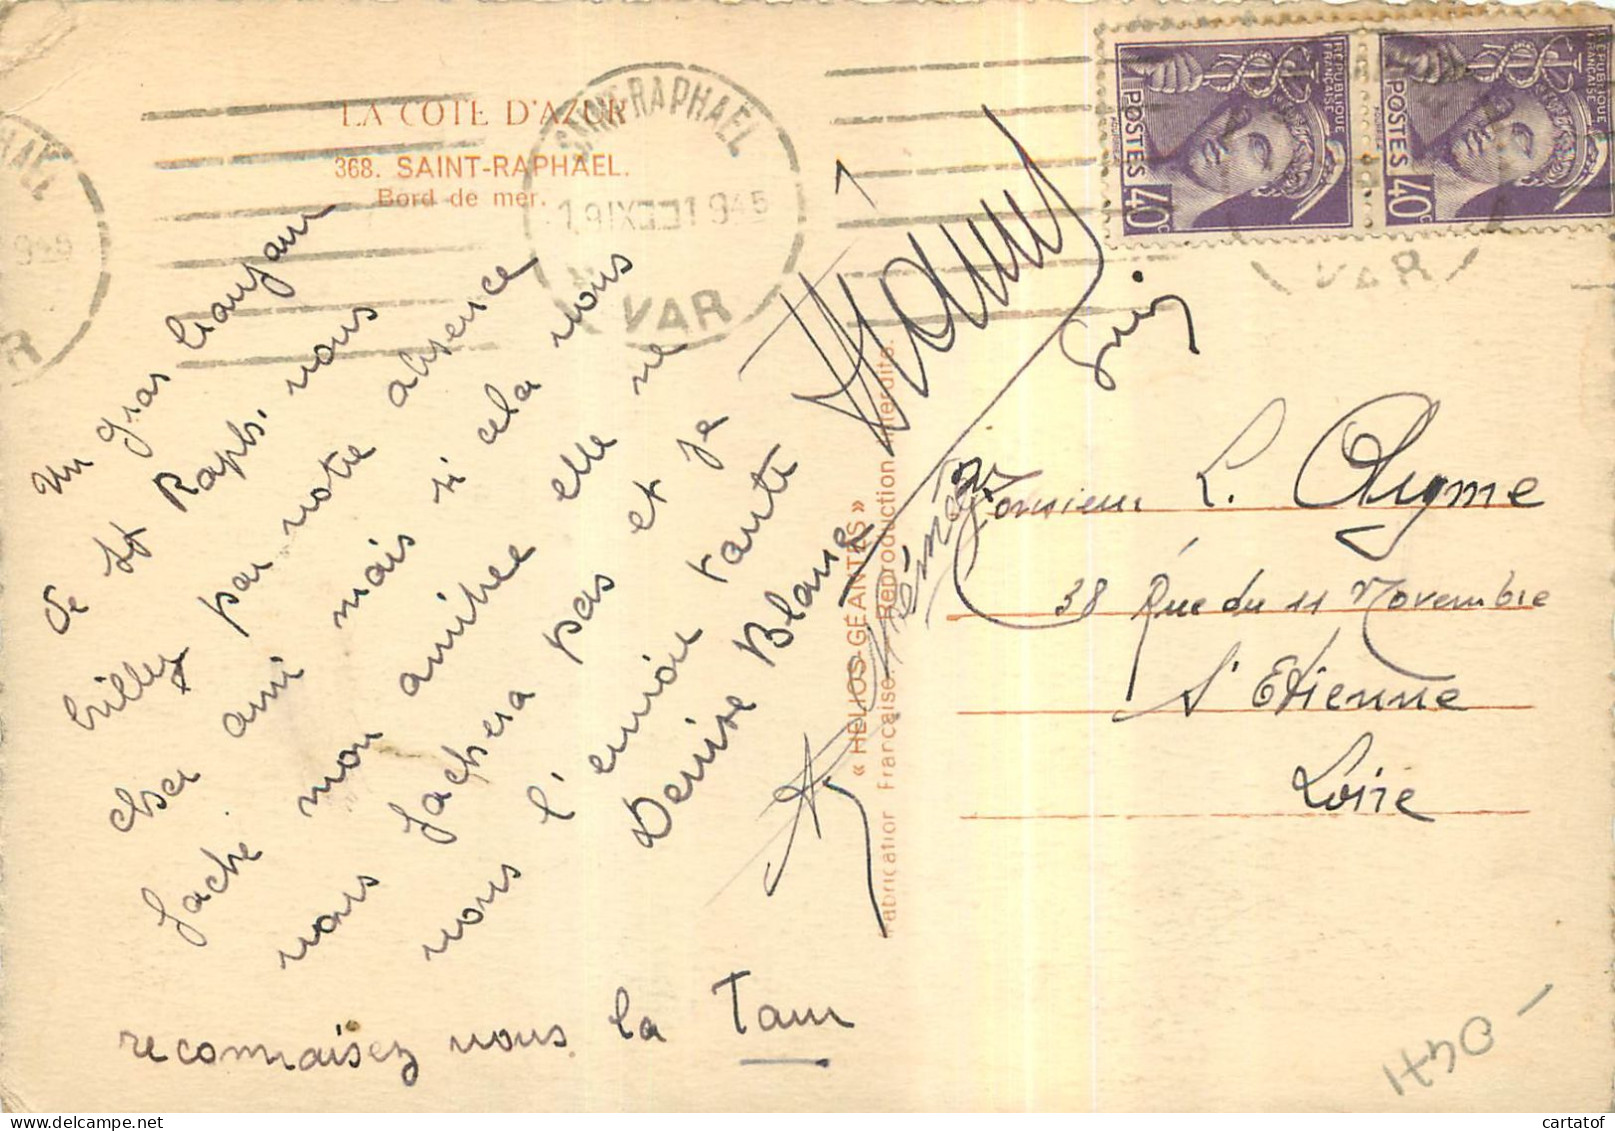 LA COTE D'AZUR
368. SAINT-RAPHAËL.
Bord de mer.
SAINT-RAPHAEL
1945
VAR
REPUBLIQUE FRANÇAISE
POSTES 40c
REPUBLIQUE FRANÇAISE
POSTES 40c
VAR
Un gros
de St Raph. vous
par votre absence
cher ami mais si cela vous
fache mon amitiee elle ne
vous fachera pas et je
vous l'envoie tante
Denise Blanc
reconnaisez vous la Tam
« HELIOS-GÉANTES »
Fabrication Française. Reproduction interdite.
Monsieur L. Aygme
38 Rue du 11 Novembre
St Etienne
Loire
cartatof